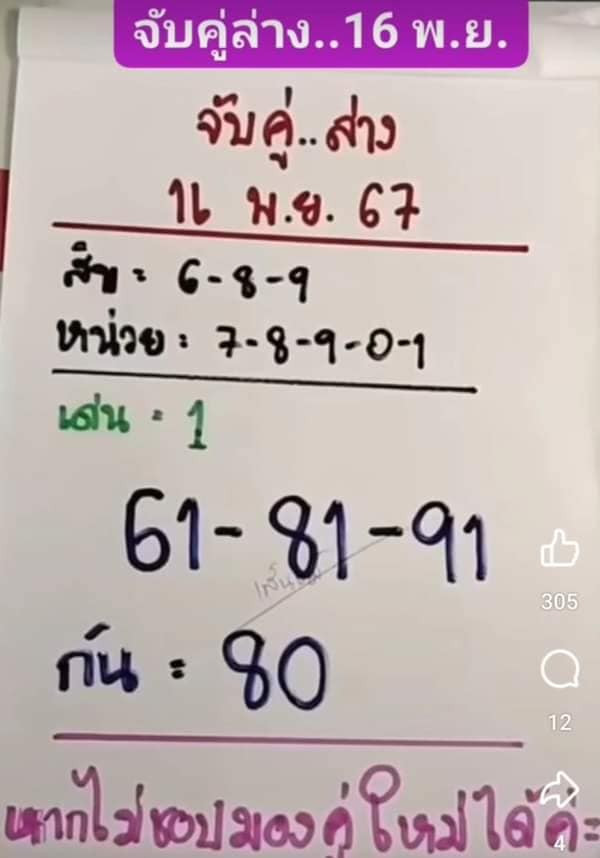 จับคู่ล่าง..16 พ.ย.
จับคู่..ล่าง
16 พ.ย. 67
สิบ = 6-8-9
หน่วย = 7-8-9-0-1
เด่น = 1
61-81-91
กัน = 80
หากไม่ชอบมองคู่ใหม่ได้ค่ะ
305
12
4